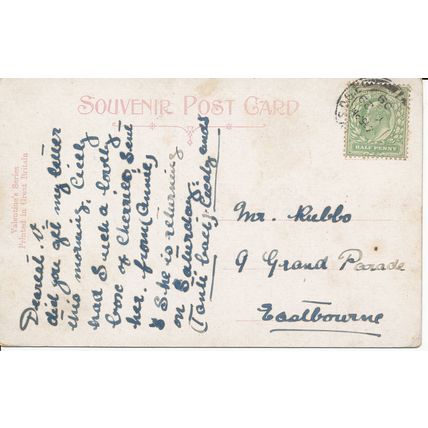 SOUVENIR POST CARD
Valentine's Series
Printed in Great Britain
HALF PENNY
Dearest V.
did you get my letter
this morning, Cicely
had such a lovely
box of Cherries sent
her. from Annie,
& She is returning
on Saturday.
love
Mr. Rubbo
9 Grand Parade
Eastbourne